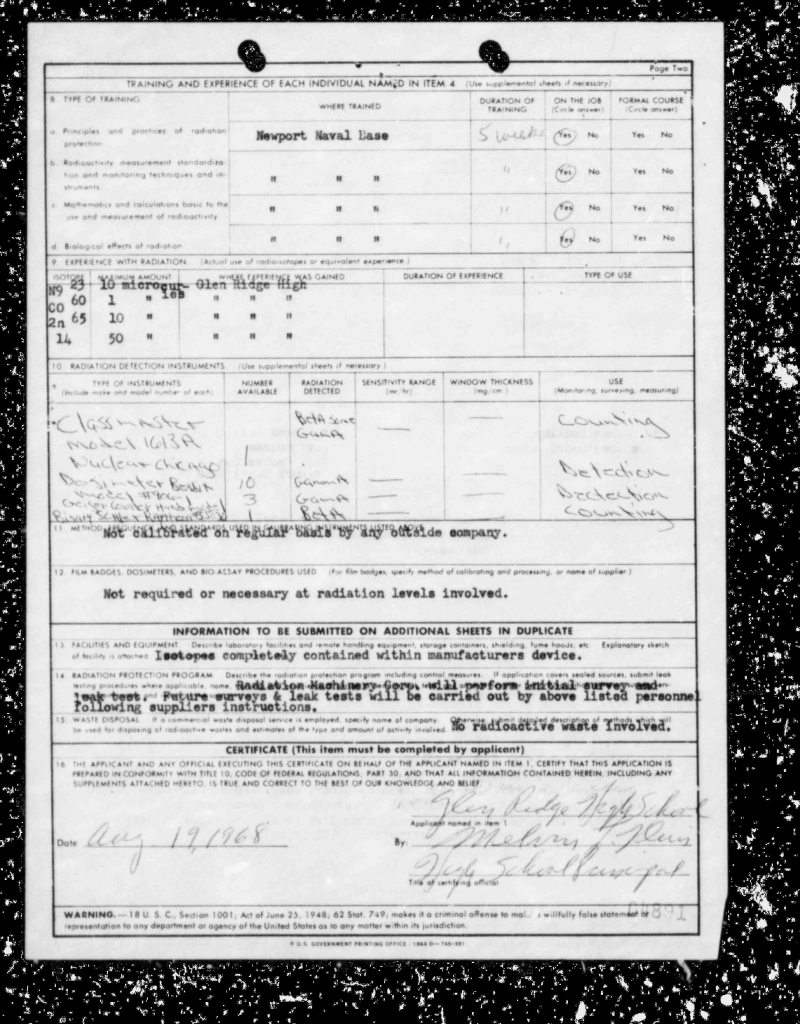 Page Two
TRAINING AND EXPERIENCE OF EACH INDIVIDUAL NAMED IN ITEM 4 (Use supplemental sheets if necessary)
8. TYPE OF TRAINING WHERE TRAINED DURATION OF TRAINING ON THE JOB (Circle answer) FORMAL COURSE (Circle answer)
a. Principles and practices of radiation protection Newport Naval Base 5 weeks Yes No Yes No
b. Radioactivity measurement standardization and monitoring techniques and instruments " " " " Yes No Yes No
c. Mathematics and calculations basic to the use and measurement of radioactivity " " " " Yes No Yes No
d. Biological effects of radiation " " " " Yes No Yes No
9. EXPERIENCE WITH RADIATION (Actual use of radioisotopes or equivalent experience.)
ISOTOPE MAXIMUM AMOUNT WHERE EXPERIENCE WAS GAINED DURATION OF EXPERIENCE TYPE OF USE
N9 23 10 microcuries Glen Ridge High
CO 60 1 " " " "
2n 65 10 " " " "
14 50 " " " "
10. RADIATION DETECTION INSTRUMENTS. (Use supplemental sheets if necessary.)
TYPE OF INSTRUMENTS (Include make and model number of each) NUMBER AVAILABLE RADIATION DETECTED SENSITIVITY RANGE (mr/hr) WINDOW THICKNESS (mg/cm²) USE (Monitoring, surveying, measuring)
Classmaster Beta some — — Counting
Model 1613A GamA
Nuclear Chicago 1
Dosimeter Bendix 10 GammA — — Detection
3 GamA — — Dectection
1 BetA — — Counting
11. METHOD, FREQUENCY, AND STANDARDS USED IN CALIBRATING INSTRUMENTS LISTED ABOVE.
Not calibrated on regular basis by any outside company.
12. FILM BADGES, DOSIMETERS, AND BIO-ASSAY PROCEDURES USED. (For film badges, specify method of calibrating and processing, or name of supplier.)
Not required or necessary at radiation levels involved.
INFORMATION TO BE SUBMITTED ON ADDITIONAL SHEETS IN DUPLICATE
13. FACILITIES AND EQUIPMENT. Describe laboratory facilities and remote handling equipment, storage containers, shielding, fume hoods, etc. Explanatory sketch
of facility is attached. Isotopes completely contained within manufacturers device.
14. RADIATION PROTECTION PROGRAM. Describe the radiation protection program including control measures. If application covers sealed sources, submit leak
testing procedures where applicable, name, Radiation Machinery Corp. will perform initial survey and
leak test. Future surveys & leak tests will be carried out by above listed personnel
following suppliers instructions.
15. WASTE DISPOSAL. If a commercial waste disposal service is employed, specify name of company. Otherwise, submit detailed description of methods which will
be used for disposing of radioactive wastes and estimates of the type and amount of activity involved. No radioactive waste involved.
CERTIFICATE (This item must be completed by applicant)
16. THE APPLICANT AND ANY OFFICIAL EXECUTING THIS CERTIFICATE ON BEHALF OF THE APPLICANT NAMED IN ITEM 1, CERTIFY THAT THIS APPLICATION IS
PREPARED IN CONFORMITY WITH TITLE 10, CODE OF FEDERAL REGULATIONS, PART 30, AND THAT ALL INFORMATION CONTAINED HEREIN, INCLUDING ANY
SUPPLEMENTS ATTACHED HERETO, IS TRUE AND CORRECT TO THE BEST OF OUR KNOWLEDGE AND BELIEF.
Glen Ridge High School
Applicant named in item 1
Date Aug 19 1968 By: Melvin
High School Principal
Title of certifying official
WARNING.—18 U. S. C., Section 1001; Act of June 25, 1948; 62 Stat. 749; makes it a criminal offense to make a willfully false statement or
representation to any department or agency of the United States as to any matter within its jurisdiction.
U.S. GOVERNMENT PRINTING OFFICE